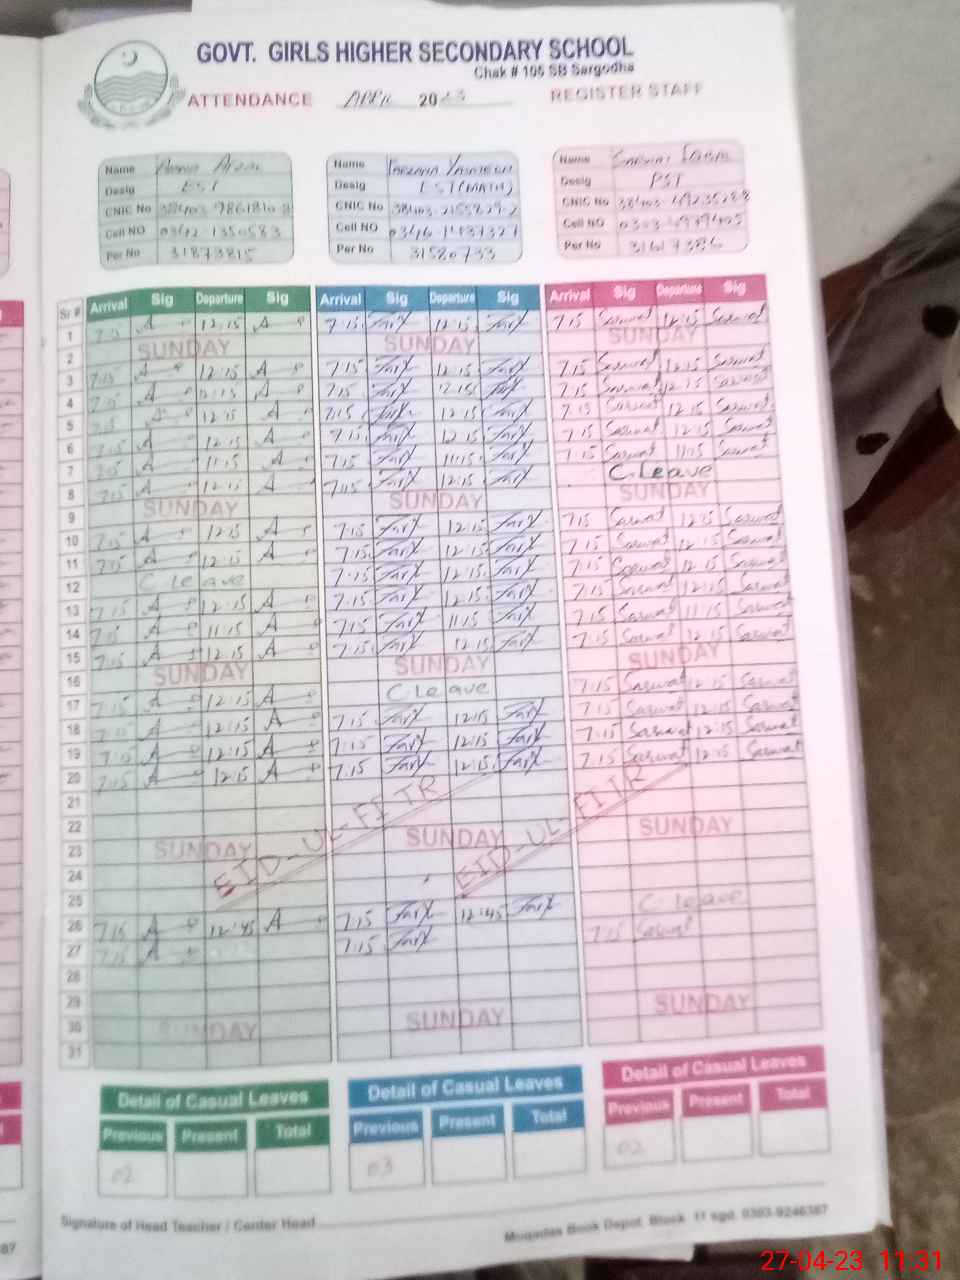 GOVT. GIRLS HIGHER SECONDARY SCHOOL
Chak # 106 SB Sargodha
ATTENDANCE APRIL 2023 REGISTER STAFF
Name Name Farzana Yasmeen Name Sarwat
Desig EST Desig EST (MATH) Desig PST
CNIC No CNIC No 38403-2155829-2 CNIC No 38403-4923528-8
Cell NO 0342-1350583 Cell NO 0346-1437327 Cell NO 0303-4979405
Per No 31873815 Per No 31580733 Per No 31617386
Sr # Arrival Sig Departure Sig Arrival Sig Departure Sig Arrival Sig Departure Sig
1 7:15 A 12:15 A 7:15 12:15 7:15 Sarwat 12:15 Sarwat
2 SUNDAY SUNDAY SUNDAY
3 7:15 A 12:15 A 7:15 12:15 7:15 Sarwat 12:15 Sarwat
4 7:15 A 12:15 A 7:15 12:15 7:15 Sarwat 12:15 Sarwat
5 7:15 A 12:15 A 7:15 12:15 7:15 Sarwat 12:15 Sarwat
6 7:15 A 12:15 A 7:15 12:15 7:15 Sarwat 12:15 Sarwat
7 7:15 A 11:15 A 7:15 11:15 7:15 Sarwat 11:15 Sarwat
8 7:15 A 12:15 A 7:15 12:15 C-Leave
9 SUNDAY SUNDAY SUNDAY
10 7:15 A 12:15 A 7:15 12:15 7:15 Sarwat 12:15 Sarwat
11 7:15 A 12:15 A 7:15 12:15 7:15 Sarwat 12:15 Sarwat
12 C Leave 7:15 12:15 7:15 Sarwat 12:15 Sarwat
13 7:15 A 12:15 A 7:15 12:15 7:15 Sarwat 12:15 Sarwat
14 7:15 A 11:15 A 7:15 11:15 7:15 Sarwat 11:15 Sarwat
15 7:15 A 12:15 A 7:15 12:15 7:15 Sarwat 12:15 Sarwat
16 SUNDAY SUNDAY SUNDAY
17 7:15 A 12:15 A C Leave 7:15 Sarwat 12:15 Sarwat
18 7:15 A 12:15 A 7:15 12:15 7:15 Sarwat 12:15 Sarwat
19 7:15 A 12:15 A 7:15 12:15 7:15 Sarwat 12:15 Sarwat
20 7:15 A 12:15 A 7:15 12:15 7:15 Sarwat 12:15 Sarwat
21
22
23 SUNDAY SUNDAY SUNDAY
EID-UL-FITR EID-UL-FITR
24
25
26 7:15 A 12:45 A 7:15 12:45 C-Leave
27 7:15 A 7:15 7:15 Sarwat
28
29
30 SUNDAY SUNDAY SUNDAY
31
Detail of Casual Leaves Detail of Casual Leaves Detail of Casual Leaves
Previous Present Total Previous Present Total Previous Present Total
02 03 02
Signature of Head Teacher / Center Head Muqadas Book Depot, Block 11 sgd. 0303-9246387
87
27-04-23 11:31